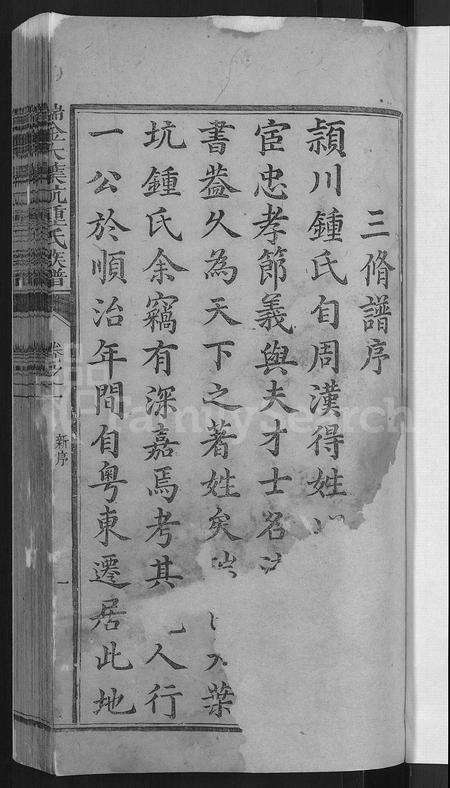 三脩譜序
頴川鍾氏自周漢得姓
宦忠孝節義與夫才士名
書葢久為天下之著姓矣 葉
坑鍾氏余竊有深嘉焉考其 人行
一公於順治年間自粤東遷居此地
瑞金大葉坑鍾氏族譜
卷之一
新序
一
FamilySearch